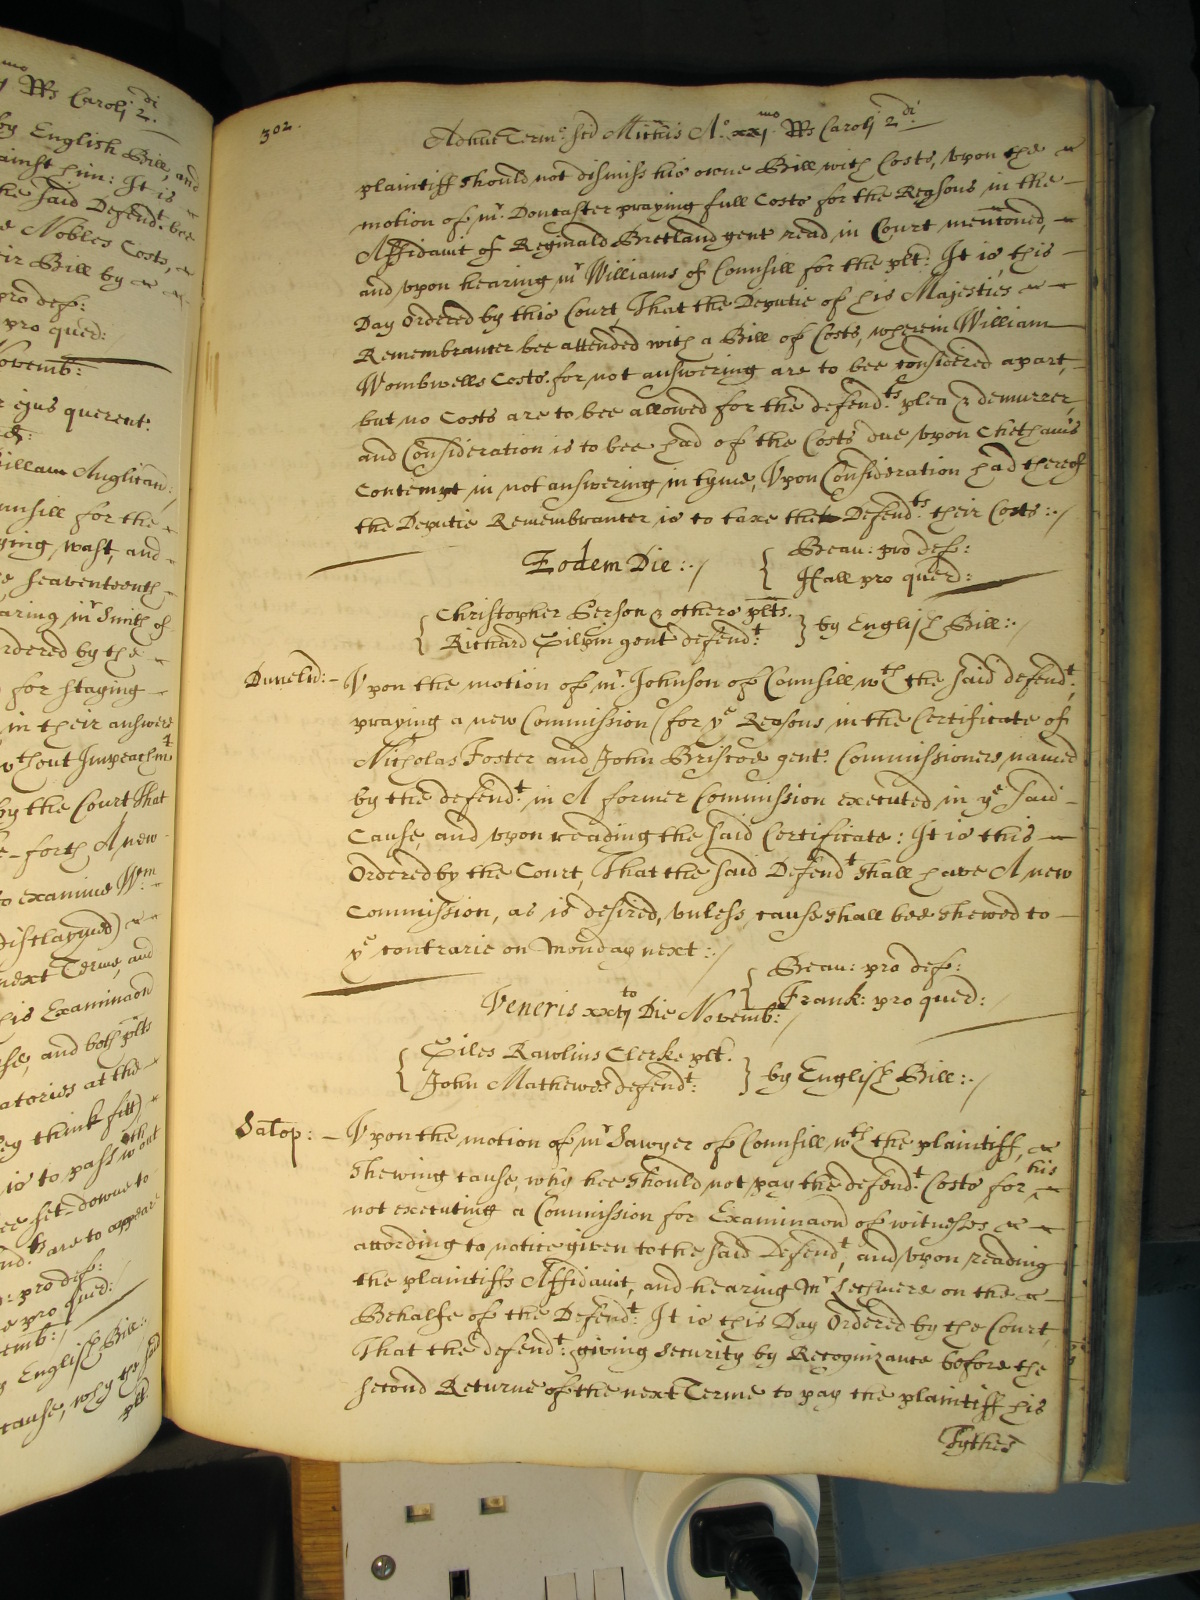 mo di
Rs Caroli 2.
by English Bill, and
against him: It is
the said Defendt. bee
Nobles Costs,
their Bill by
pro def:
pro quer:
Novemb:
ejus querent:
Billam Anglican:
Counsill for the
wast, and
seaventeenth
hearing mr Smith of
Ordered by the
for staying
in their answere
without Impeachmt
by the Court, That
forth A new
to examine Wm
disclaymed)
next Terme, and
his Examinacon
and both plts
atories at the
they think fitt)
is to pass wthout
bee sett downe to
ts are to appear
pro def:
pro quer:
emb:
English Bill:
cause, why the said
plt
302.
Adhuc Termo: sci Michis Ao. xximo. Rs Caroli 2di:
plaintiff should not dismiss his owne Bill with Costs, upon the
motion of mr. Doncaster praying full Costs for the Reasons in the
Affidavit of Reginald Bretland gent read in Court mencioned,
and upon hearing mr Williams of Counsill for the plt: It is this
Day Ordered by this Court, That the Deputie of his Majesties
Remembrancer bee attended with a Bill of Costs, wherein William
Wombwells Costs for not answering are to bee considered apart,
but no Costs are to bee allowed for the defendts. plea & demurrer,
and Consideration is to bee had of the Costs due upon Chethams
Contempt in not answering in tyme, Upon Consideration had thereof
the Deputie Remembrancer is to taxe the Defendts. their Costs:
Eodem Die:
Beau: pro def:
Hall pro quer:
Christopher Gerson & others plts.
Richard Gilpin gent defendt:
by English Bill:
Dunelm: Upon the motion of mr. Johnson of Counsill wth the said defendt,
praying a new Commission (for ye Reasons in the Certificate of
Nicholas Foster and John Briscoe gent: Commissioners named
by the defendt. in A former Commission executed in ye said
Cause, and upon reading the said Certificate: It is this
Ordered by the Court, That the said Defendt shall have A new
Commission, as is desired, unless, cause shall bee shewed to
ye contrarie on Monday next:
Beau: pro def:
Frank: pro quer:
Veneris xxto Die Novemb:
Giles Rawlins Clerke plt.
John Mathewes defendt:
by English Bill:
Salop: Upon the motion of mr Sawyer of Counsill wth the plaintiff,
shewing cause, why hee should not pay the defendt. Costs for his
not executing a Commission for Examinacon of witnesses
according to notice given to the said Defendt, and upon reading
the plaintiffs Affidavit, and hearing Mr Lechmere on the
Behalfe of the Defendt: It is this Day Ordered by the Court
That the defendt: giving security by Recognizance before the
second Returne of the next Terme to pay the plaintiff his
Tythes